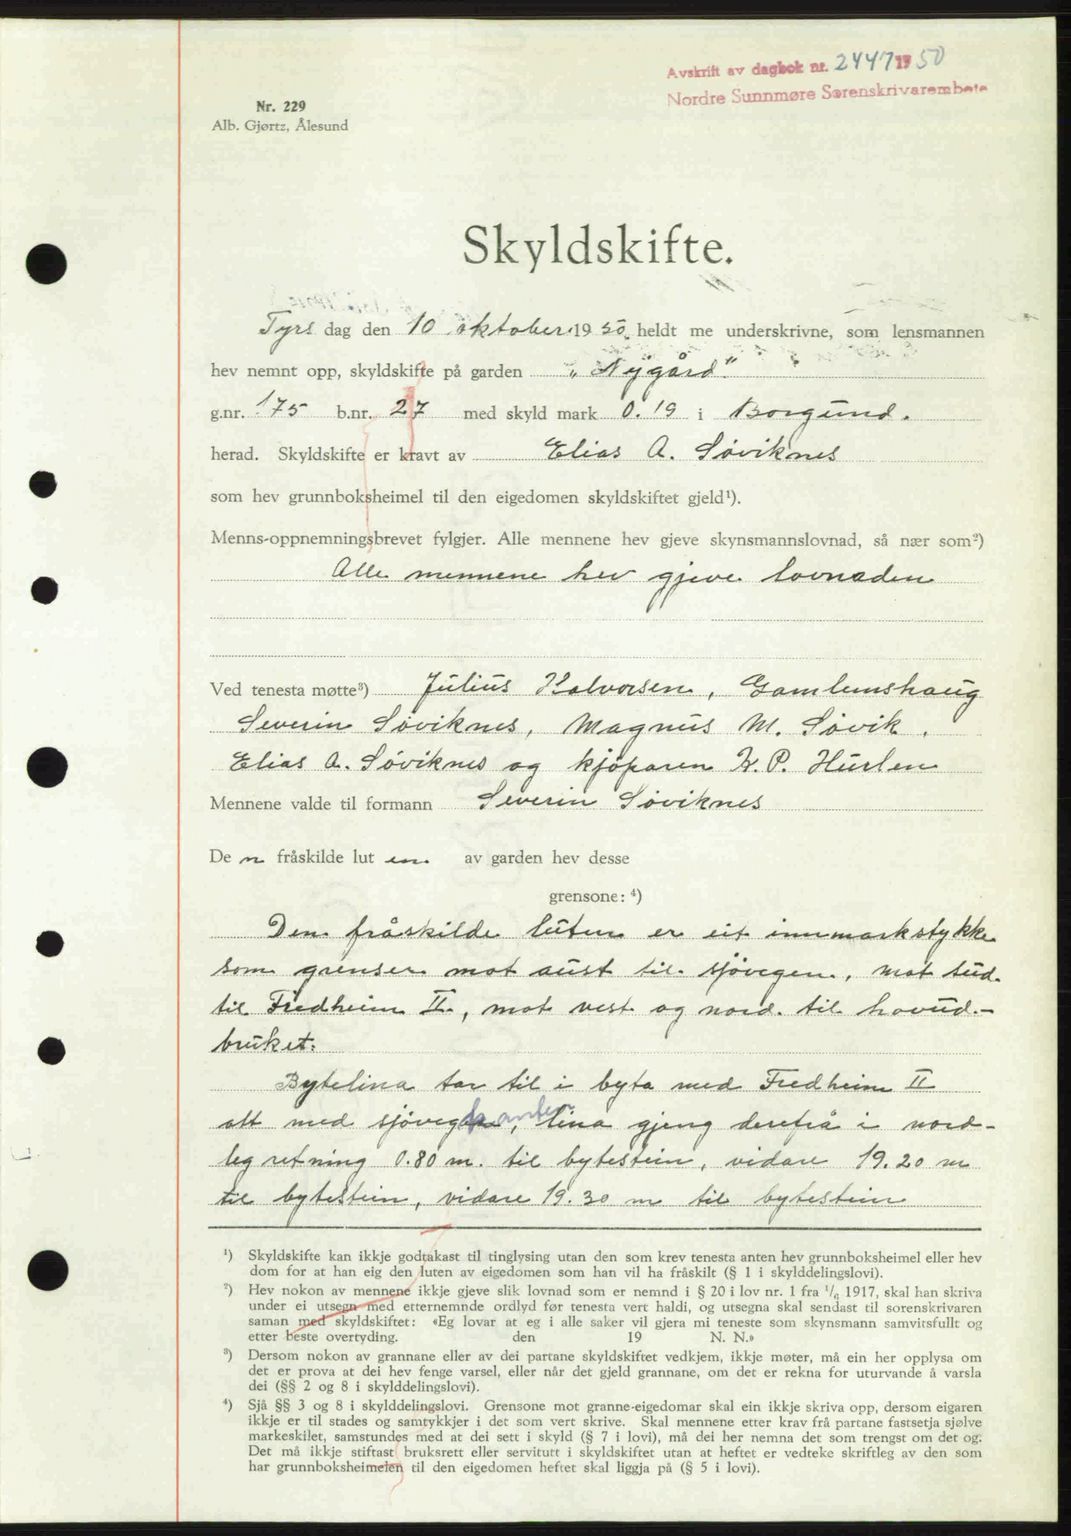 Avskrift av dagbok nr. 2447 1950
Nordre Sunnmøre Sorenskrivarembete
Nr. 229
Alb. Gjørtz, Ålesund
Skyldskifte.
Tyrs dag den 10 oktober 1950 heldt me underskrivne, som lensmannen
hev nemnt opp, skyldskifte på garden "Nygård"
g.nr. 175 b.nr. 27 med skyld mark 0.19 i Borgund.
herad. Skyldskifte er kravt av Elias A. Søviknes
som hev grunnboksheimel til den eigedomen skyldskiftet gjeld¹).
Menns-oppnemningsbrevet fylgjer. Alle mennene hev gjeve skynsmannslovnad, så nær som²)
Alle mennene hev gjeve lovnaden
Ved tenesta møtte³) Julius Halvorsen, Gamlemshaug
Severin Søviknes, Magnus M. Søvik,
Elias A. Søviknes og kjøparen K. P. Hurlen
Mennene valde til formann Severin Søviknes
De n fråskilde lut en av garden hev desse
grensone: ⁴)
Den fråskilde luten er eit innmarkstykke
som grenser mot aust til sjøvegen, mot sud
til Fredheim II, mot vest og nord til hovud-
bruket.
Bytelina tar til i byta med Fredheim II
att med sjøvegkanten, lina gjeng derefrå i nord-
leg retning 0.80 m. til bytestein, vidare 19.20 m
til bytestein, vidare 19.30 m til bytestein
¹) Skyldskifte kan ikkje godtakast til tinglysing utan den som krev tenesta anten hev grunnboksheimel eller hev
dom for at han eig den luten av eigedomen som han vil ha fråskilt (§ 1 i skylddelingslovi).
²) Hev nokon av mennene ikkje gjeve slik lovnad som er nemnd i § 20 i lov nr. 1 fra 1/6 1917, skal han skriva
under ei utsegn med etternemnde ordlyd før tenesta vert haldi, og utsegna skal sendast til sorenskrivaren
saman med skyldskiftet: «Eg lovar at eg i alle saker vil gjera mi teneste som skynsmann samvitsfullt og
etter beste overtyding. den 19 N. N.»
³) Dersom nokon av grannane eller av dei partane skyldskiftet vedkjem, ikkje møter, må ein her opplysa om
det er prova at dei hev fenge varsel, eller når det gjeld grannane, om det er rekna for uturvande å varsla
dei (§§ 2 og 8 i skylddelingslovi).
⁴) Sjå §§ 3 og 8 i skylddelingslovi. Grensone mot granne-eigedomar skal ein ikkje skriva opp, dersom eigaren
ikkje er til stades og samtykkjer i det som vert skrive. Skal mennene etter krav frå partane fastsetja sjølve
markeskilet, samstundes med at dei sett i skyld (§ 7 i lovi), må dei her nemna det som trengst om det og.
Det må ikkje stiftast bruksrett eller servitutt i skyldskiftet utan at heftet er vedteke skriftleg av den som
har grunnboksheimelen til den eigedomen heftet skal liggja på (§ 5 i lovi).